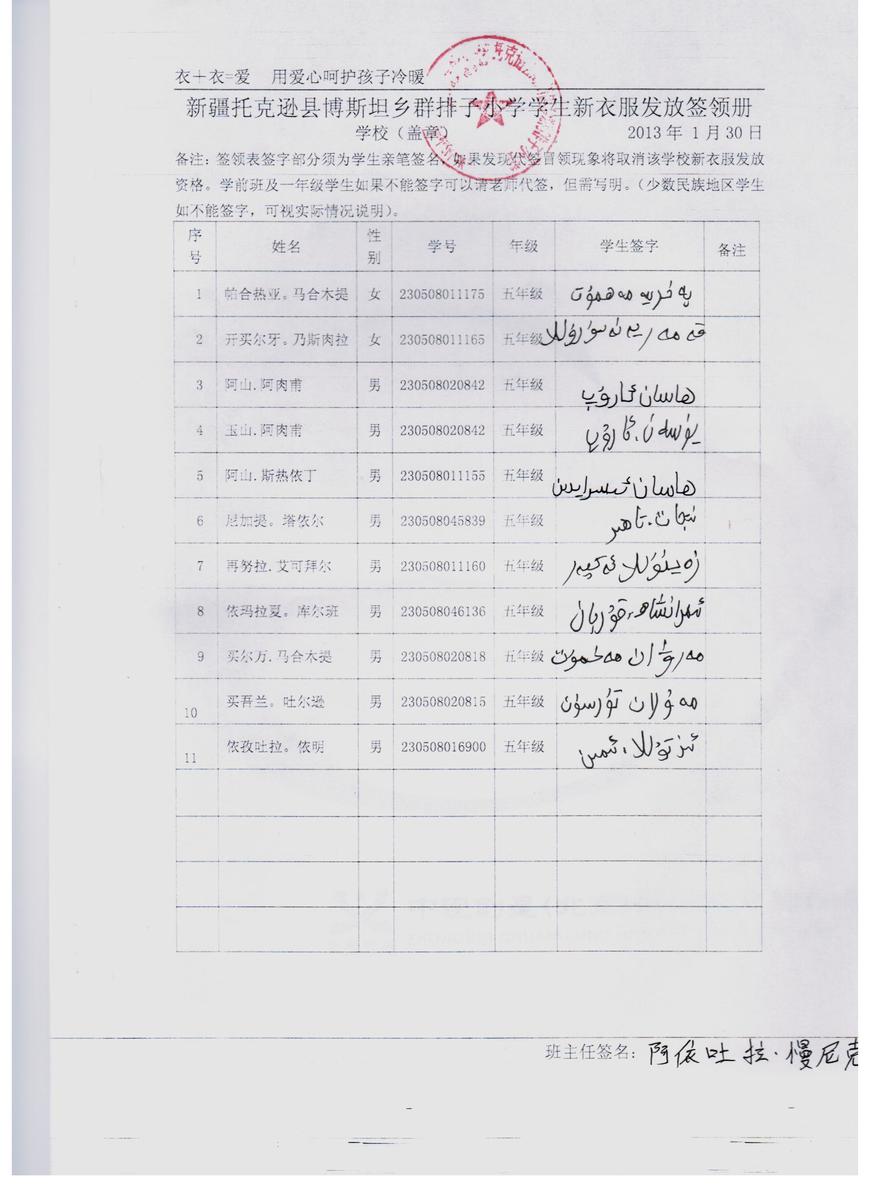 衣+衣=爱 用爱心呵护孩子冷暖
新疆托克逊县博斯坦乡群排子小学学生新衣服发放签领册
学校（盖章） 2013年 1月30日
备注：签领表签字部分须为学生亲笔签名，如果发现代签冒领现象将取消该学校新衣服发放
资格。学前班及一年级学生如果不能签字可以请老师代签，但需写明。（少数民族地区学生
如不能签字，可视实际情况说明）。
序号 姓名 性别 学号 年级 学生签字 备注
1 帕合热亚。马合木提 女 230508011175 五年级 پەخرىيە مەھمۇت
2 开买尔牙。乃斯肉拉 女 230508011165 五年级 قەمەرىيە نەسرۇللا
3 阿山.阿肉甫 男 230508020842 五年级 ھاسان ئارۇپ
4 玉山.阿肉甫 男 230508020842 五年级 يۈسەن.ئارۇپ
5 阿山.斯热依丁 男 230508011155 五年级 ھاسان
6 尼加提。塔依尔 男 230508045839 五年级 نىجات.تاھىر
7 再努拉.艾可拜尔 男 230508011160 五年级 زەينۇللا ئەكپەر
8 依玛拉夏。库尔班 男 230508046136 五年级 قۇربان
9 买尔万.马合木提 男 230508020818 五年级 مەرۋان مەخمۇت
10 买吾兰。吐尔逊 男 230508020815 五年级 مەۋلان تۇرسۇن
11 依孜吐拉。依明 男 230508016900 五年级 ئىزتۇللا، ئىمىن
班主任签名：阿依吐拉·慢尼克